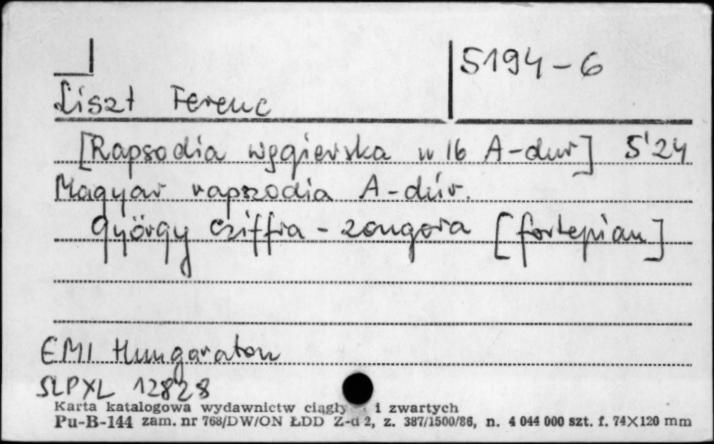 5194-6
Liszt Ferenc
[Rapsodia węgierska nr 16 A-dur] 5'24
Magyar rapszodia A-dúr.
György Cziffra - zongora [fortepian]
EMI Hungaraton
SLPXL 12828
Karta katalogowa wydawnictw ciągły i zwartych
Pu-B-144 zam. nr 768/DW/ON ŁDD Z-d 2, z. 387/1500/86, n. 4 044 000 szt. f. 74×120 mm